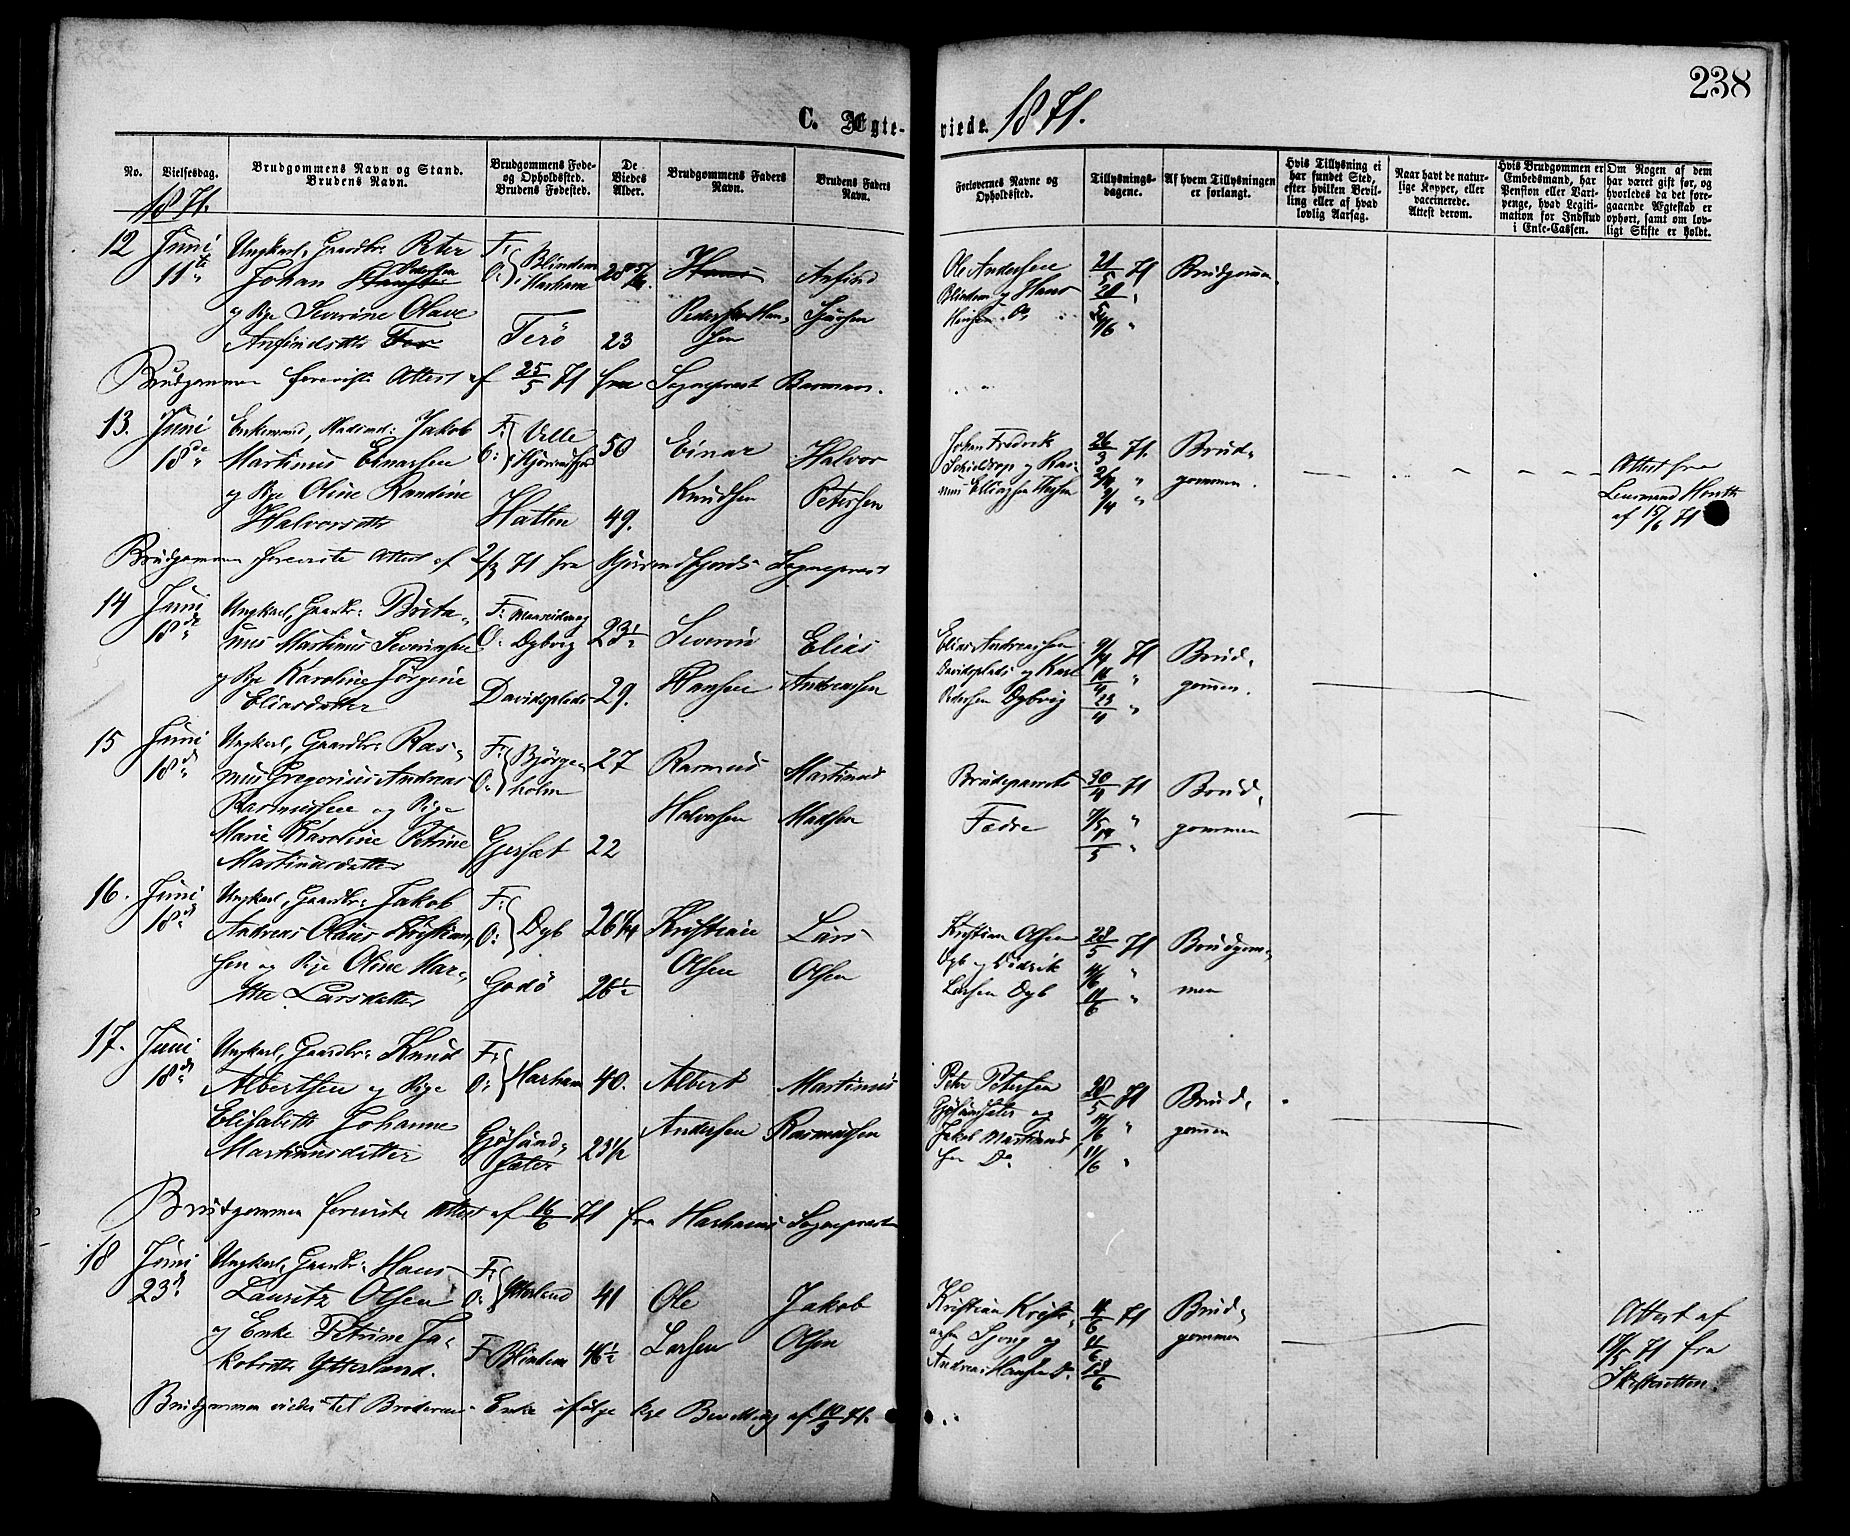 238
C. Ægteviede. 1871.
No.
Vielsesdag.
Brudgommens Navn og Stand.
Brudens Navn.
Brudgommens Føde-
og Opholdssted.
Brudens Fødested.
De
Viedes
Alder.
Brudgommens Faders
Navn.
Brudens Faders
Navn.
Forlovernes Navne og
Opholdssted.
Tillysnings-
dagene.
Af hvem Tillysningen
er forlangt.
Hvis Tillysning ei
har fundet Sted,
efter hvilken Bevil-
ling eller af hvad
lovlig Aarsag.
Naar havt de natur-
lige Kopper, eller
vaccinerede.
Attest derom.
Hvis Brudgommen er
Embedsmand, har
Pension eller Vart-
penge, hvad Legiti-
mation for Indskud
i Enke-Cassen.
Om Nogen af dem
har været gift før, og
hvorledes da det fore-
gaaende Ægteskab er
ophørt, samt om lov-
ligt Skifte er holdt.
1871.
12 Juni 11te
Ungkarl, Gaardbr: Peter
Johan Pedersen
og Pige Severine Olave
Anfindsdtr
F: O: Blindem Harham
Terö
23
Pedersen Han-
sen
Anfind
Ole Andersen
Blindem og Hans
21/5 71
Brudgommen.
Brudgommen foreviste Attest af 25/5 71 fra Sognepræst
13. Juni 18de
Enkemand, Jakob
Martinus Einarsen
og Pige Oline Randine
Halvorsdtr
F: O: Velle Hjörundfjord
50
Hatlen 49.
Einar
Knudsen
Halvor
Petersen
Johan Fredrik
Skjeldrop og Ras-
mus
26/3 71.
2/4 "
9/4 "
Brud-
gommen.
Attest fra
Lensmand
af 15/6 71
Brudgommen foreviste Attest af 2/3 71 fra Hjörundfjords Sognepræst
14 Juni 18de
Ungkarl, Gaardbr: Brita-
nus Martinus Severinsen
og Pige Karoline Jörgine
Eliasdatter
F:
O: Dybvig
23 1/2
Davidsplads 29.
Severin
Hansen
Elias
Andreassen
Elias Andreassen
Davidsplads og Karl
Pedersen Dybvig
9/4 71
16/4 "
23/4 "
Brud-
gommen.
15 Juni 18de
Ungkarl, Gaardbr: Ras-
mus Gregorius Andreas
Rasmussen og Pige
Marie Karoline Petrine
Martinusdatter
F: O: Björge-
holm
27
Gjersæt 22
Rasmus
Halvorsen
Martinus
Madsen
Brudeparrets
Fædre
30/4 71
7/5 "
Brud-
gommen
16. Juni 18de
Ungkarl, Gaardbr: Jakob
Andreas Olaus Kristian-
sen og Pige Oline Mar-
the Larsdatter
F: O: Dyb
26 1/4
Godö 26 1/2
Kristian
Olsen
Lars
Olsen
Kristian Olsen
Dyb og
Larsen Dyb
28/5 71
4/6 "
11/6 "
Brudgom-
men
17. Juni 18de
Ungkarl, Gaardbr: Knud
Albertsen og Pige
Elisabeth Johanne
Martinusdatter
F: O: Harham 40.
Gjösund-
sæter
23 1/2
Albert
Andersen
Martinus
Rasmussen
Peter Petersen
Gjösundsæter og
Jakob Martinus-
sen Do
28/5 71
4/6 "
11/6 "
Brud-
gommen
Brudgommen foreviste Attest af 16/6 71 fra Harhams Sognepræst
18 Juni 23de
Ungkarl, Gaardbr: Hans
Lauritz Olsen
og Enke Petrine Ja-
kobsdtr Ytterland.
F: O: Ytterland 41
F: Blindem 46 1/2
Ole
Larsen
Jakob
Olsen
Kristian Kristi-
ansen og
Andreas Hansen Do.
4/6 71
11/6
18/6
Brud-
gommen
Attest af
71 fra
Skifteretten.
Brudgommen viedes til Broderens Enke ifölge kgl Bevilling af 10/3 71.